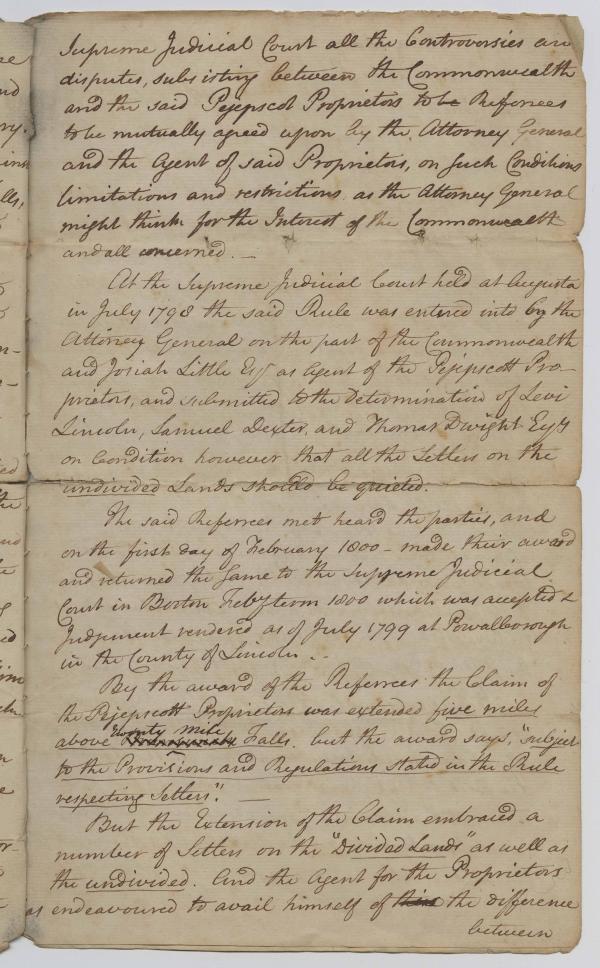 Supreme Judicial Court all the Controversies and
disputes, subsisting between the Commonwealth
and the said Pejepscot Proprietors to be Referrees
to be mutually agreed upon by the Attorney General
and the Agent of said Proprietors, on such Conditions
limitations and restrictions as the Attorney General
might think for the Interest of the Commonwealth
and all concerned. —
At the Supreme Judicial Court held at Augusta
in July 1798 the said Rule was entered into by the
Attorney General on the part of the Commonwealth
and Josiah Little Esqr as Agent of the Pejepscott Pro-
prietors, and submitted to the Determination of Levi
Lincoln, Samuel Dexter, and Thomas Dwight Esqrs
on Condition however that all the Setlers on the
undivided Lands should be quieted.
The said Referrees met heard the parties, and
on the first day of February 1800 – made their award
and returned the same to the Supreme Judicial
Court in Boston Feby term 1800 which was accepted &
Judgement rendered as of July 1799 at Pownalborough
in the County of Lincoln ..
By the award of the Referrees the Claim of
the Pejepscott Proprietors was extended five miles
above twenty mile Falls. but the award says, "subject
to the Provisions and Regulations stated in the Rule
respecting Setlers". —
But the Extension of the Claim embraced a
number of Setlers on the "Divided Lands" as well as
the undivided. And the Agent for the Proprietors
as endeavoured to avail himself of the difference
between